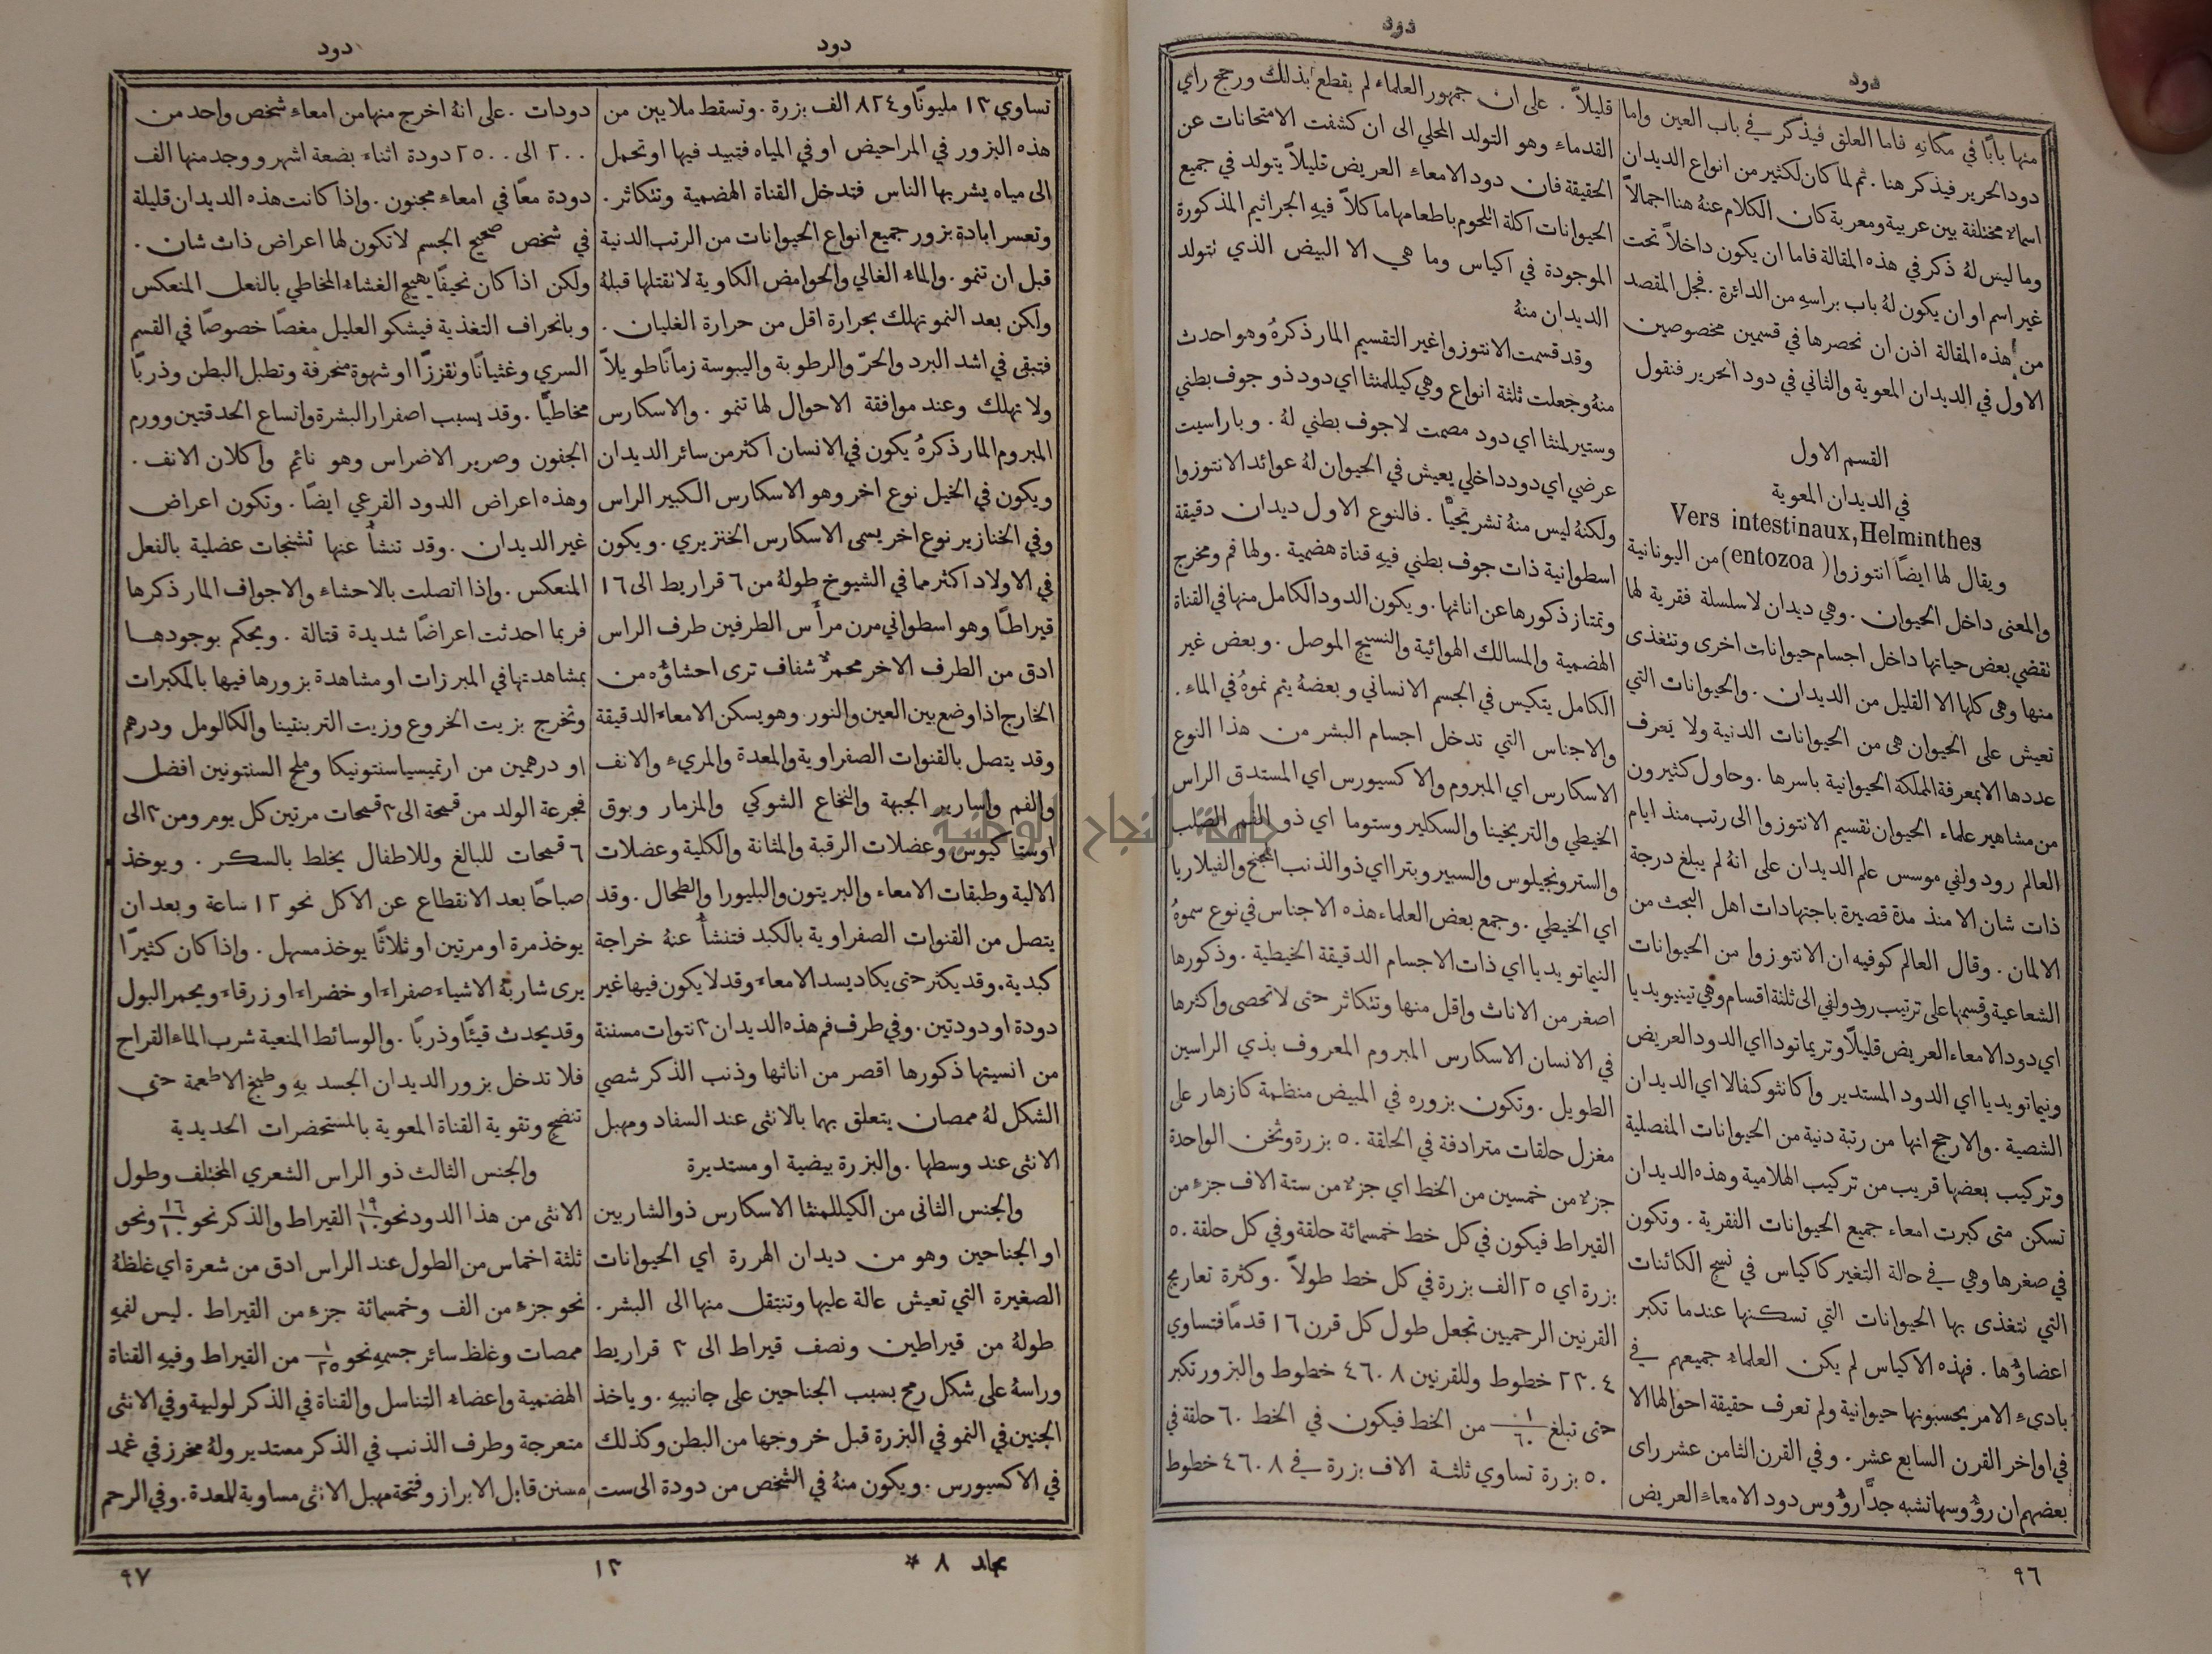 دود
دود
منها بابًا في مكانهِ فاما العلق فيذكر في باب العين واما
دود الحرير فيذكر هنا . ثم لما كان لكثير من انواع الديدان
اسماء مختلفة بين عربية ومعربة كان الكلام عنهُ هنا اجمالاً
وما ليس لهُ ذكر في هذه المقالة فاما ان يكون داخلاً تحت
غير اسم او ان يكون لهُ باب براسهِ من الدائرة . فجل المقصد
من هذه المقالة اذن ان نحصرها في قسمين مخصوصين
الاول في الديدان المعوية والثاني في دود الحرير فنقول
القسم الاول
في الديدان المعوية
Vers intestinaux, Helminthes
ويقال لها ايضًا انتوزوا (entozoa) من اليونانية
والمعنى داخل الحيوان . وهي ديدان لا سلسلة فقرية لها
تقضي بعض حياتها داخل اجسام حيوانات اخرى وتتغذى
منها وهي كلها الا القليل من الديدان . والحيوانات التي
تعيش على الحيوان هي من الحيوانات الدنية ولا يَعرف
عددها الا بمعرفة المملكة الحيوانية باسرها . وحاول كثيرون
من مشاهير علماء الحيوان تقسيم الانتوزوا الى رتب منذ ايام
العالم رودولفي موسس علم الديدان على انهُ لم يبلغ درجة
ذات شان الا منذ مدة قصيرة باجتهادات اهل البحث من
الالمان . وقال العالم كوفيه ان الانتوزوا من الحيوانات
الشعاعية وقسمها على ترتيب رودولفي الى ثلثة اقسام وهي تينيويديا
اي دود الامعاء العريض قليلاً وتريماتودا اي الدود العريض
ونيماتويديا اي الدود المستدير واكانثوكفالا اي الديدان
الشصية . والارجح انها من رتبة دنية من الحيوانات المفصلية
وتركيب بعضها قريب من تركيب الهلامية وهذه الديدان
تسكن متى كبرت امعاء جميع الحيوانات الفقرية . وتكون
في صغرها وهي في حالة التغير كاكياس في نسج الكائنات
التي تتغذى بها الحيوانات التي تسكنها عندما تكبر
اعضاؤها . فهذه الاكياس لم يكن العلماء جميعهم في
بادىء الامر يحسبونها حيوانية ولم تعرف حقيقة احوالها الا
في اواخر القرن السابع عشر . وفي القرن الثامن عشر راى
بعضهم ان رؤوسها تشبه جدًّا رؤوس دود الامعاء العريض
قليلاً . على ان جمهور العلماء لم يقطع بذلك ورجح راي
القدماء وهو التولد المحلي الى ان كشفت الامتحانات عن
الحقيقة فان دود الامعاء العريض قليلاً يتولد في جميع
الحيوانات اكلة اللحوم باطعامها ماكلاً فيهِ الجراثيم المذكورة
الموجودة في اكياس وما هي الا البيض الذي تتولد
الديدان منهُ
وقد قسمت الانتوزوا غير التقسيم المار ذكرهُ وهو احدث
منهُ وجعلت ثلثة انواع وهي كيللمنثا اي دود ذو جوف بطني
وستيرلمنثا اي دود مصمت لا جوف بطني لهُ . وباراسيت
عرضي اي دود داخلي يعيش في الحيوان لهُ عوائد الانتوزوا
ولكنهُ ليس منهُ تشريحيًّا . فالنوع الاول ديدان دقيقة
اسطوانية ذات جوف بطني فيهِ قناة هضمية . ولها فم ومخرج
وتمتاز ذكورها عن اناثها . ويكون الدود الكامل منها في القناة
الهضمية والمسالك الهوائية والنسيج الموصل . وبعض غير
الكامل يتكيس في الجسم الانساني وبعضهُ يتم نموهُ في الماء .
والاجناس التي تدخل اجسام البشر من هذا النوع
الاسكارس اي المبروم والاكسيورس اي المستدق الراس
الخيطي والتريخينا والسكلير وستوما اي ذو الفم الصلب
والسترونجيلوس والسبيروبترا اي ذو الذنب المجنح والفيلاريا
اي الخيطي . وجمع بعض العلماء هذه الاجناس في نوع سموهُ
النيماتويديا اي ذات الاجسام الدقيقة الخيطية . وذكورها
اصغر من الاناث واقل منها وتتكاثر حتى لا تحصى واكثرها
في الانسان الاسكارس المبروم المعروف بذي الراسين
الطويل . وتكون بزوره في المبيض منظمة كازهار على
مغزل حلقات مترادفة في الحلقة ٥٠ بزرة وثخن الواحدة
جزء من خمسين من الخط اي جزء من ستة الاف جزء من
القيراط فيكون في كل خط خمسمائة حلقة وفي كل حلقة ٥٠
بزرة اي ٢٥ الف بزرة في كل خط طولاً . وكثرة تعاريج
القرنين الرحميين تجعل طول كل قرن ١٦ قدمًا فتساوي
٢٣٠٤ خطوط وللقرنين ٤٦٠٨ خطوط والبزور تكبر
حتى تبلغ ١/٦٠ من الخط فيكون في الخط ٦٠ حلقة في
٥٠ بزرة تساوي ثلثة الاف بزرة في ٤٦٠٨ خطوط
٩٦
دود
دود
تساوي ١٣ مليونًا و٨٢٤ الف بزرة . وتسقط ملايين من
هذه البزور في المراحيض او في المياه فتبيد فيها او تحمل
الى مياه يشربها الناس فتدخل القناة الهضمية وتتكاثر .
وتعسر ابادة بزور جميع انواع الحيوانات من الرتب الدنية
قبل ان تنمو . والماء الغالي والحوامض الكاوية لا تقتلها قبلهُ
ولكن بعد النمو تهلك بحرارة اقل من حرارة الغليان .
فتبقى في اشد البرد والحرّ والرطوبة واليبوسة زمانًا طويلاً
ولا تهلك وعند موافقة الاحوال لها تنمو . والاسكارس
المبروم المار ذكرهُ يكون في الانسان اكثر من سائر الديدان
ويكون في الخيل نوع اخر وهو الاسكارس الكبير الراس
وفي الخنازير نوع اخر يسمى الاسكارس الخنزيري . ويكون
في الاولاد اكثر مما في الشيوخ طولهُ من ٦ قراريط الى ١٦
قيراطًا وهو اسطواني مرن مرأَّس الطرفين طرف الراس
ادق من الطرف الاخر محمرٌّ شفاف ترى احشاؤه من
الخارج اذا وضع بين العين والنور . وهو يسكن الامعاء الدقيقة
وقد يتصل بالقنوات الصفراوية والمعدة والمريء والانف
والفم واسارير الجبهة والنخاع الشوكي والمزمار وبوق
اوستاكيوس وعضلات الرقبة والمثانة والكلية وعضلات
الالية وطبقات الامعاء والبريتون والبليورا والطحال . وقد
يتصل من القنوات الصفراوية بالكبد فتنشأ عنهُ خراجة
كبدية . وقد يكثر حتى يكاد يسد الامعاء وقد لا يكون فيها غير
دودة او دودتين . وفي طرف فم هذه الديدان ٣ نتوات مسننة
من انسيتها ذكورها اقصر من اناثها وذنب الذكر شصي
الشكل لهُ ممصان يتعلق بهما بالانثى عند السفاد ومهبل
الانثى عند وسطها . والبزرة بيضية او مستديرة
والجنس الثاني من الكيللمنثا الاسكارس ذو الشاربين
او الجناحين وهو من ديدان الهررة اي الحيوانات
الصغيرة التي تعيش عالة عليها وتنتقل منها الى البشر .
طولهُ من قيراطين ونصف قيراط الى ٣ قراريط
وراسهُ على شكل رمح بسبب الجناحين على جانبيهِ . وياخذ
الجنين في النمو في البزرة قبل خروجها من البطن وكذلك
في الاكسيورس . ويكون منهُ في الشخص من دودة الى ست
دودات . على انهُ اخرج منها من امعاء شخص واحد من
٢٠٠ الى ٢٥٠٠ دودة اثناء بضعة اشهر ووجد منها الف
دودة معًا في امعاء مجنون . واذا كانت هذه الديدان قليلة
في شخص صحيح الجسم لا تكون لها اعراض ذات شان .
ولكن اذا كان نحيفًا يهيج الغشاء المخاطي بالفعل المنعكس
وبانحراف التغذية فيشكو العليل مغصًا خصوصًا في القسم
السري وغثيانًا وتقززًا او شهوة منحرفة وتطبل البطن وذربًا
مخاطيًّا . وقد يسبب اصفرار البشرة واتساع الحدقتين وورم
الجفون وصرير الاضراس وهو نائم وأكلان الانف .
وهذه اعراض الدود القرعي ايضًا . وتكون اعراض
غير الديدان . وقد تنشأُ عنها تشنجات عضلية بالفعل
المنعكس . واذا اتصلت بالاحشاء والاجواف المار ذكرها
فربما احدثت اعراضًا شديدة قتالة . ويحكم بوجودها
بمشاهدتها في المبرزات او مشاهدة بزورها فيها بالمكبرات
وتخرج بزيت الخروع وزيت التربنتينا والكالومل ودرهم
او درهمين من ارتميسيا سنتونيكا وملح السنتونين افضل
فجرعة الولد من قمحة الى ٣ قمحات مرتين كل يوم ومن ٣ الى
٦ قمحات للبالغ وللاطفال يخلط بالسكر . ويوخذ
صباحًا بعد الانقطاع عن الاكل نحو ١٢ ساعة وبعد ان
يوخذ مرة او مرتين او ثلاثًا يوخذ مسهل . واذا كان كثيرًا
يرى شاربهُ الاشياء صفراء او خضراء او زرقاء ويحمر البول
وقد يحدث قيئًا وذربًا . والوسائط المنعية شرب الماء القراح
فلا تدخل بزور الديدان الجسد بهِ وطبخ الاطعمة حتى
تنضج وتقوية القناة المعوية بالمستحضرات الحديدية
والجنس الثالث ذو الراس الشعري المختلف وطول
الانثى من هذا الدود نحو ١٩/١٠ القيراط والذكر نحو ١٦/١٠ ونحو
ثلثة اخماس من الطول عند الراس ادق من شعرة اي غلظهُ
نحو جزء من الف وخمسمائة جزء من القيراط . ليس لفمهِ
ممصات وغلظ سائر جسمهِ نحو ١/٢٥ من القيراط وفيهِ القناة
الهضمية واعضاء التناسل والقناة في الذكر لولبية وفي الانثى
متعرجة وطرف الذنب في الذكر مستدير ولهُ مخرز في غمد
مسنن قابل الابراز وفتحة مهبل الانثى مساوية للمعدة . وفي الرحم
مجلد ٨ *
١٣
٩٧
جامعة النجاح الوطنية